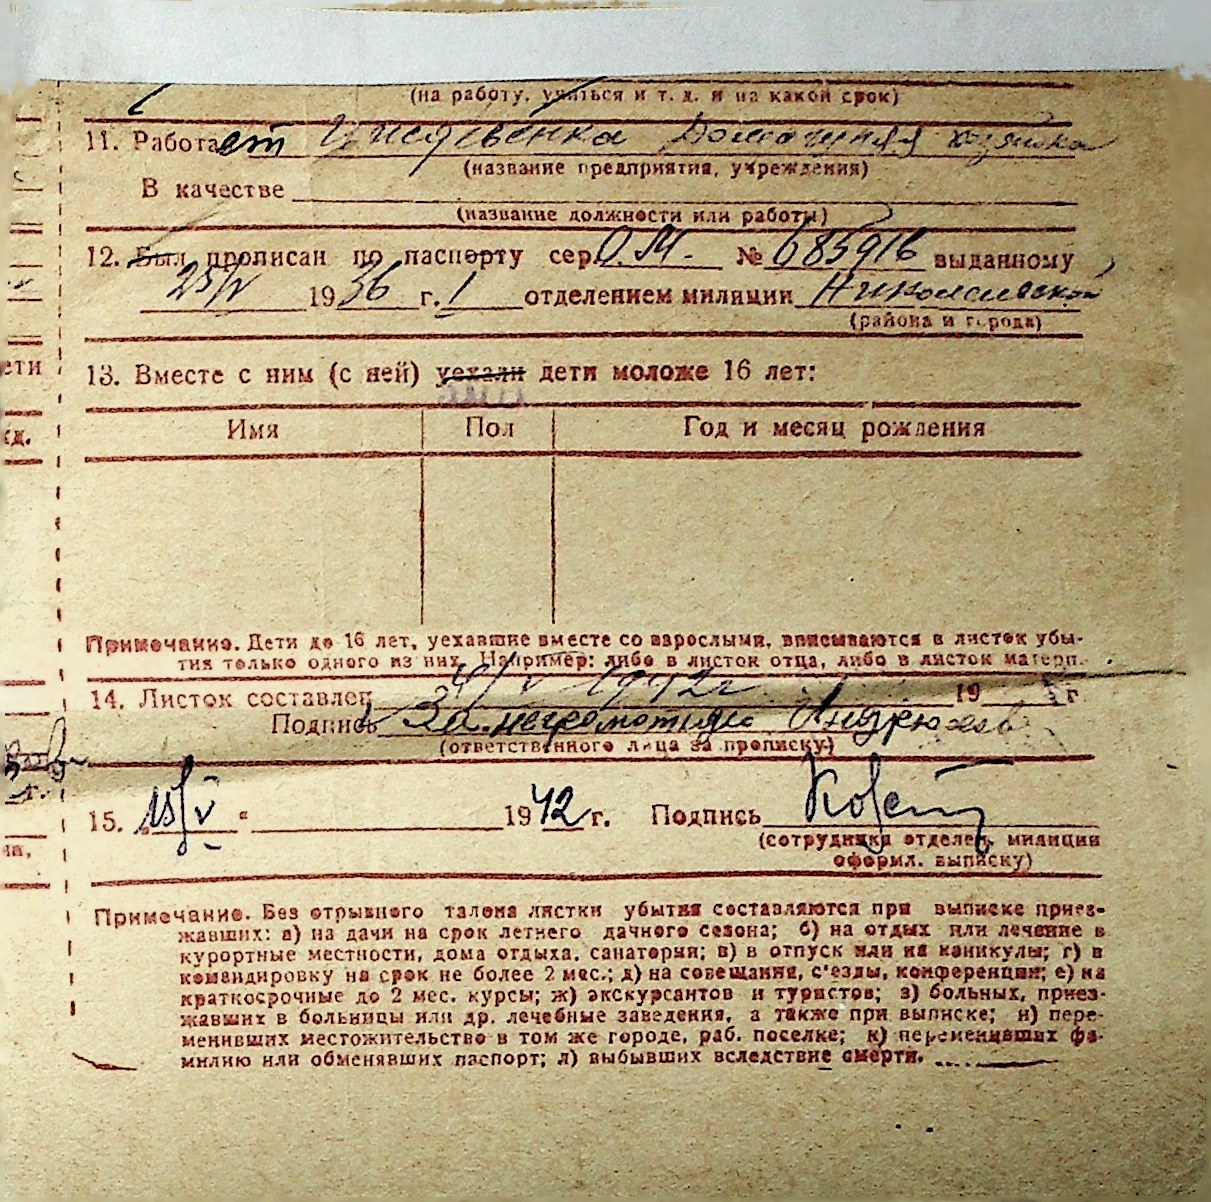 (на работу, учиться и т. д. и на какой срок)
11. Работает Иждивенка Домашняя хозяйка
(название предприятия, учреждения)
В качестве
(название должности или работы)
12. Был прописан по паспорту сер. О.М. № 685916 выданному
25/V 1936 г. 1 отделением милиции Николаевской
(района и города)
ети
13. Вместе с ним (с ней) уехали дети моложе 16 лет:
жд.
Имя Пол Год и месяц рождения
Примечание. Дети до 16 лет, уехавшие вместе со взрослыми, вписываются в листок убы-
тия только одного из них. Например: либо в листок отца, либо в листок матери.
14. Листок составлен 1942г 19 г
Подпись За неграмотную
(ответственного лица за прописку)
15. 15/V " 1942 г. Подпись
(сотрудника отделен. милиции
оформл. выписку)
Примечание. Без отрывного талона листки убытия составляются при выписке приез-
жавших: а) на дачи на срок летнего дачного сезона; б) на отдых или лечение в
курортные местности, дома отдыха, санатории; в) в отпуск или на каникулы; г) в
командировку на срок не более 2 мес.; д) на совещания, с'езды, конференции; е) на
краткосрочные до 2 мес. курсы; ж) экскурсантов и туристов; з) больных, приез-
жавших в больницы или др. лечебные заведения, а также при выписке; и) пере-
менивших местожительство в том же городе, раб. поселке; к) переменивших фа-
милию или обменявших паспорт; л) выбывших вследствие смерти.